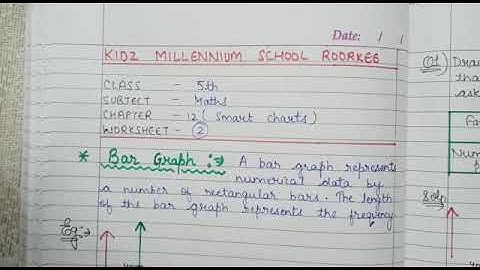 Date: / /
KIDZ MILLENNIUM SCHOOL ROORKEE
CLASS - 5th
SUBJECT - Maths
CHAPTER - 12 ( Smart charts )
WORKSHEET - 2
* Bar Graph :→ A bar graph represents
numerical data by
a number of rectangular bars. The length
of the bar graph represents the frequency
Eg:→
Q1 Dra
tha
ask
Fa
Num
Sol